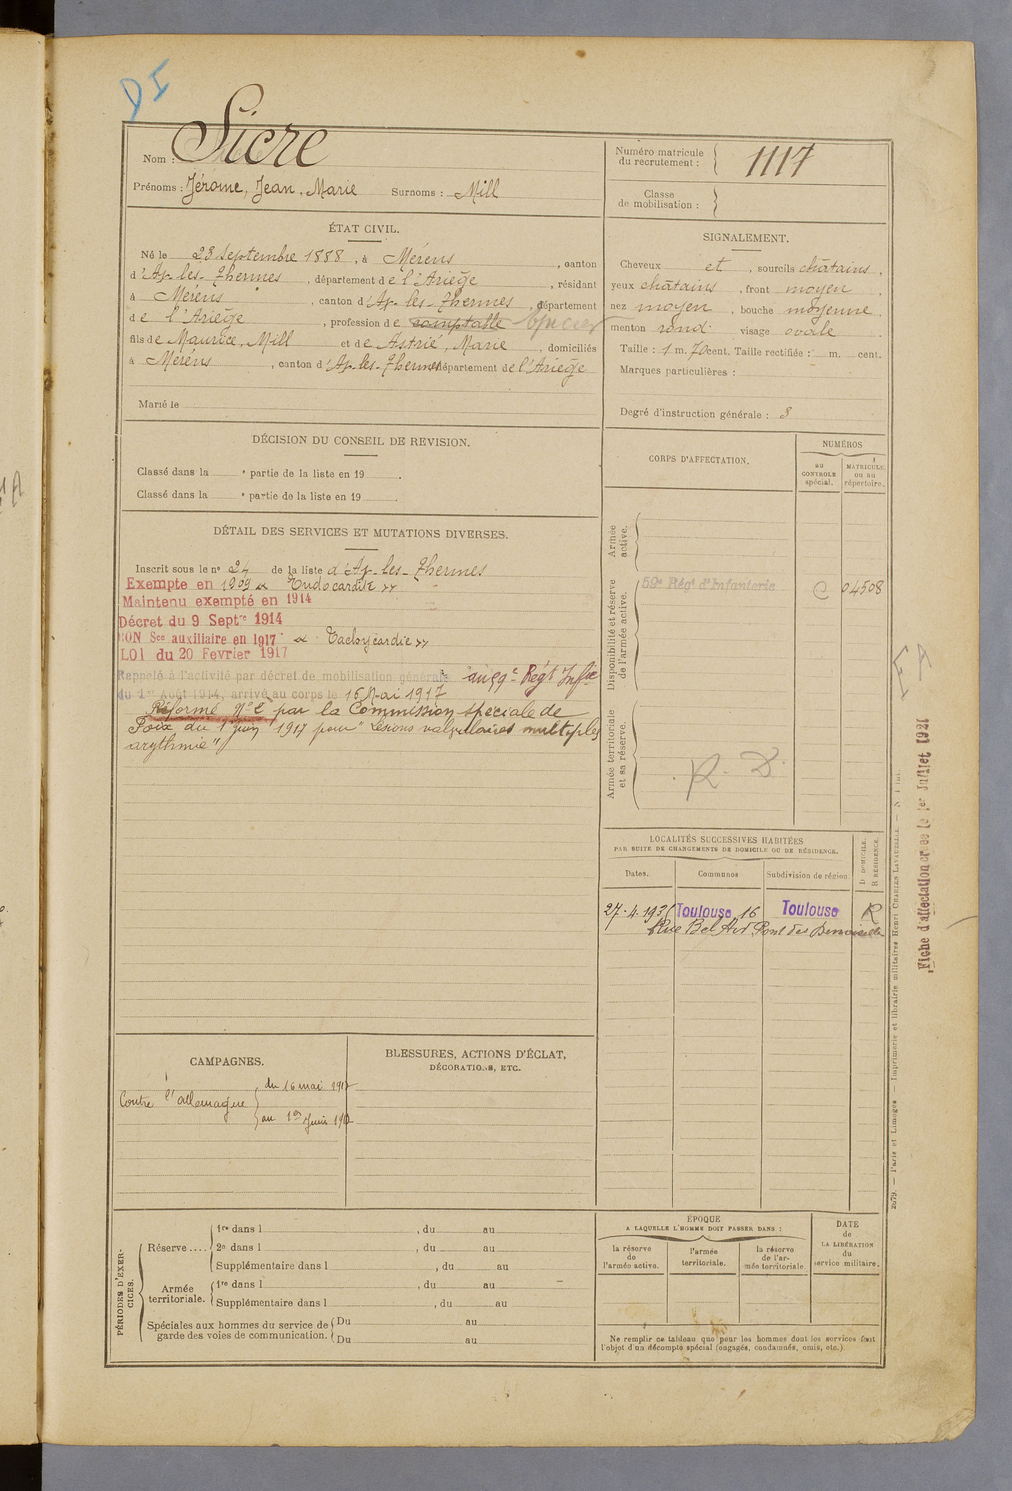 DI
Nom : Sicre
Prénoms : Jérome, Jean, Marie Surnoms : Mill
Numéro matricule du recrutement : 1117
Classe de mobilisation :
ÉTAT CIVIL.
Né le 23 Septembre 1888, à Mérens, canton
d'Ax-les-Thermes, département de l'Ariège, résidant
à Mérens, canton d'Ax-les-Thermes, département
de l'Ariège, profession de comptable
fils de Maurice, Mill et de Astrié, Marie, domiciliés
à Mérens, canton d'Ax-les-Thermes département de l'Ariège
Marié le
SIGNALEMENT.
Cheveux et, sourcils châtains,
yeux châtains, front moyen,
nez moyen, bouche moyenne,
menton rond visage ovale.
Taille : 1 m. 70 cent. Taille rectifiée : m. cent.
Marques particulières :
Degré d'instruction générale : 3
DÉCISION DU CONSEIL DE REVISION.
Classé dans la e partie de la liste en 19 .
Classé dans la e partie de la liste en 19 .
DÉTAIL DES SERVICES ET MUTATIONS DIVERSES.
Inscrit sous le n° 24 de la liste d'Ax-les-Thermes
Exempté en 1909 « Endocardite »
Maintenu exempté en 1914
Décret du 9 Septre 1914
BON Sce auxiliaire en 1917 « Tachycardie »
LOI du 20 Fevrier 1917
Rappelé à l'activité par décret de mobilisation générale au 59e Régt Infie
du 1er Août 1914, arrivé au corps le 16 Mai 1917
Réformé N°2 par la Commission spéciale de
Foix du 1 juin 1917 pour "Lésions valvulaires multiples
arythmie"
CORPS D'AFFECTATION.
NUMÉROS
au CONTROLE spécial.
MATRICULE ou au répertoire.
Armée active.
Disponibilité et réserve de l'armée active.
59e Régt d'Infanterie C 04508
Armée territoriale et sa réserve.
R. D.
LOCALITÉS SUCCESSIVES HABITÉES
PAR SUITE DE CHANGEMENTS DE DOMICILE OU DE RÉSIDENCE.
Dates. Communes Subdivision de région.
D. DOMICILE. R. RÉSIDENCE.
27-4-193 Toulouse 16 Toulouse R
Rue Bel Air Pont des Demoiselles
CAMPAGNES.
Contre l'allemagne
du 16 mai 1917
au 1er Juin 1917
BLESSURES, ACTIONS D'ÉCLAT,
DÉCORATIONS, ETC.
PÉRIODES D'EXERCICES.
Réserve....
1re dans l , du au
2e dans l , du au
Supplémentaire dans l , du au
Armée territoriale.
1re dans l , du au
Supplémentaire dans l , du au
Spéciales aux hommes du service de garde des voies de communication.
Du au
Du au
ÉPOQUE
A LAQUELLE L'HOMME DOIT PASSER DANS :
la réserve de l'armée active.
l'armée territoriale.
la réserve de l'armée territoriale.
DATE
de
LA LIBÉRATION
du
service militaire.
Ne remplir ce tableau que pour les hommes dont les services font
l'objet d'un décompte spécial (engagés, condamnés, omis, etc.).
Fiche d'affectation créée le 1er Juillet 1921
2679. — Paris et Limoges — Imprimerie et librairie militaires Henri CHARLES-LAVAUZELLE.